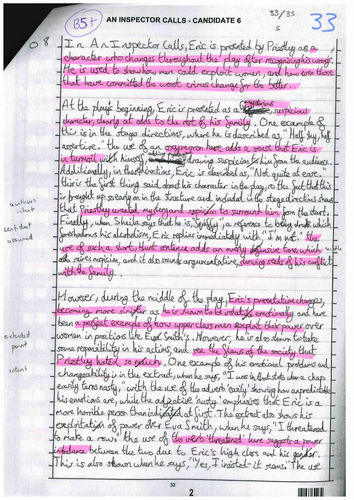 B5+
AN INSPECTOR CALLS - CANDIDATE 6
33/35
S
33
08
In An Inspector Calls, Eric is presented by Priestly as a
character who changes throughout the play after recognising his wrongs.
He is used to show how men could exploit women, and how even those
that have committed the worst crimes change for the better.
At the play's beginning, Eric is presented as a mysterious, suspicious
character, clearly at odds to the rest of his family. One example of
this is in the stage directions, where he is described as, "Half shy, half
assertive." The use of an oxymoron here adds a sense that Eric is
in turmoil with himself, drawing suspicion for him from the audience.
Additionally, in these directions, Eric is described as, "Not quite at ease."
this is the first thing said about his character in the play, so the fact that this
is brought up so early on in the structure and included in the stage directions shows
that Priestly wanted mystery and suspicion to surround him from the start.
Finally, when Sheila says that he is, "Squiffy", a reference to being drunk which
foreshadows his alcoholism, Eric replies immediately with "I'm not." the
use of such a short, blunt sentence adds an overly defensive tone which
also raises suspicion, and it also sounds argumentative, showing seeds of his conflict
with the family.
authors
what
confident
assumed
However, during the middle of the play, Eric's presentation changes,
becoming more sinister as he is shown to be volatile emotionally and have
been a perfect example of how upper class men exploit their power over
women in positions like Eva Smith's. However, he is also shown to take
some responsibility in his actions, and see the flaws of the society that
Priestly hated so much. One example of his emotional problems and
changeability is in the extract, when he says, "I was in that state when a chap
easily turns nasty." with the use of the adverb 'easily' showing how unpredictable
his emotions are, while the adjective 'nasty' emphasises that Eric is a
more horrible person than at first. The extract also shows his
exploitation of power over Eva Smith, when he says, "I threatened
to make a row." the use of the verb 'threatened' here suggests a power
imbalance between the two due to Eric's high class and his gender.
This is also shown when he says, "Yes, I insisted - it seems." The use
extended
point
intent
32
2